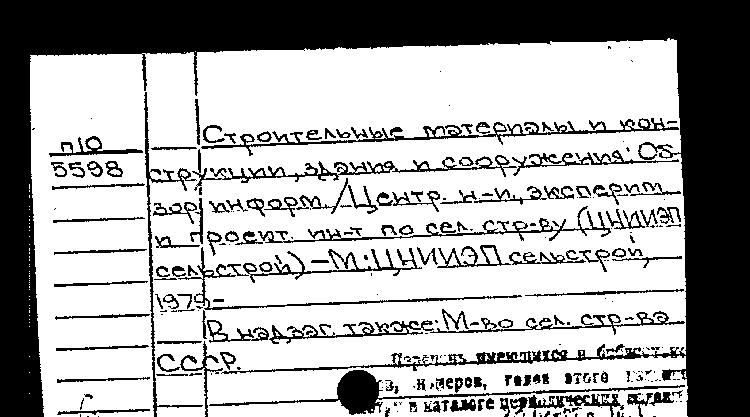 п10
5598
Строительные материалы и кон-
струкции, здания и сооружения: Об-
зор. информ. / Центр. н-и, эксперим.
и проект. ин-т по сел. стр-ву (ЦНИИЭП
сельстрой) – М.: ЦНИИЭП сельстрой,
1979-
В надзаг. также: М-во сел. стр-ва
СССР.
Перечень имеющихся в
номеров, годов этого
в каталоге периодических